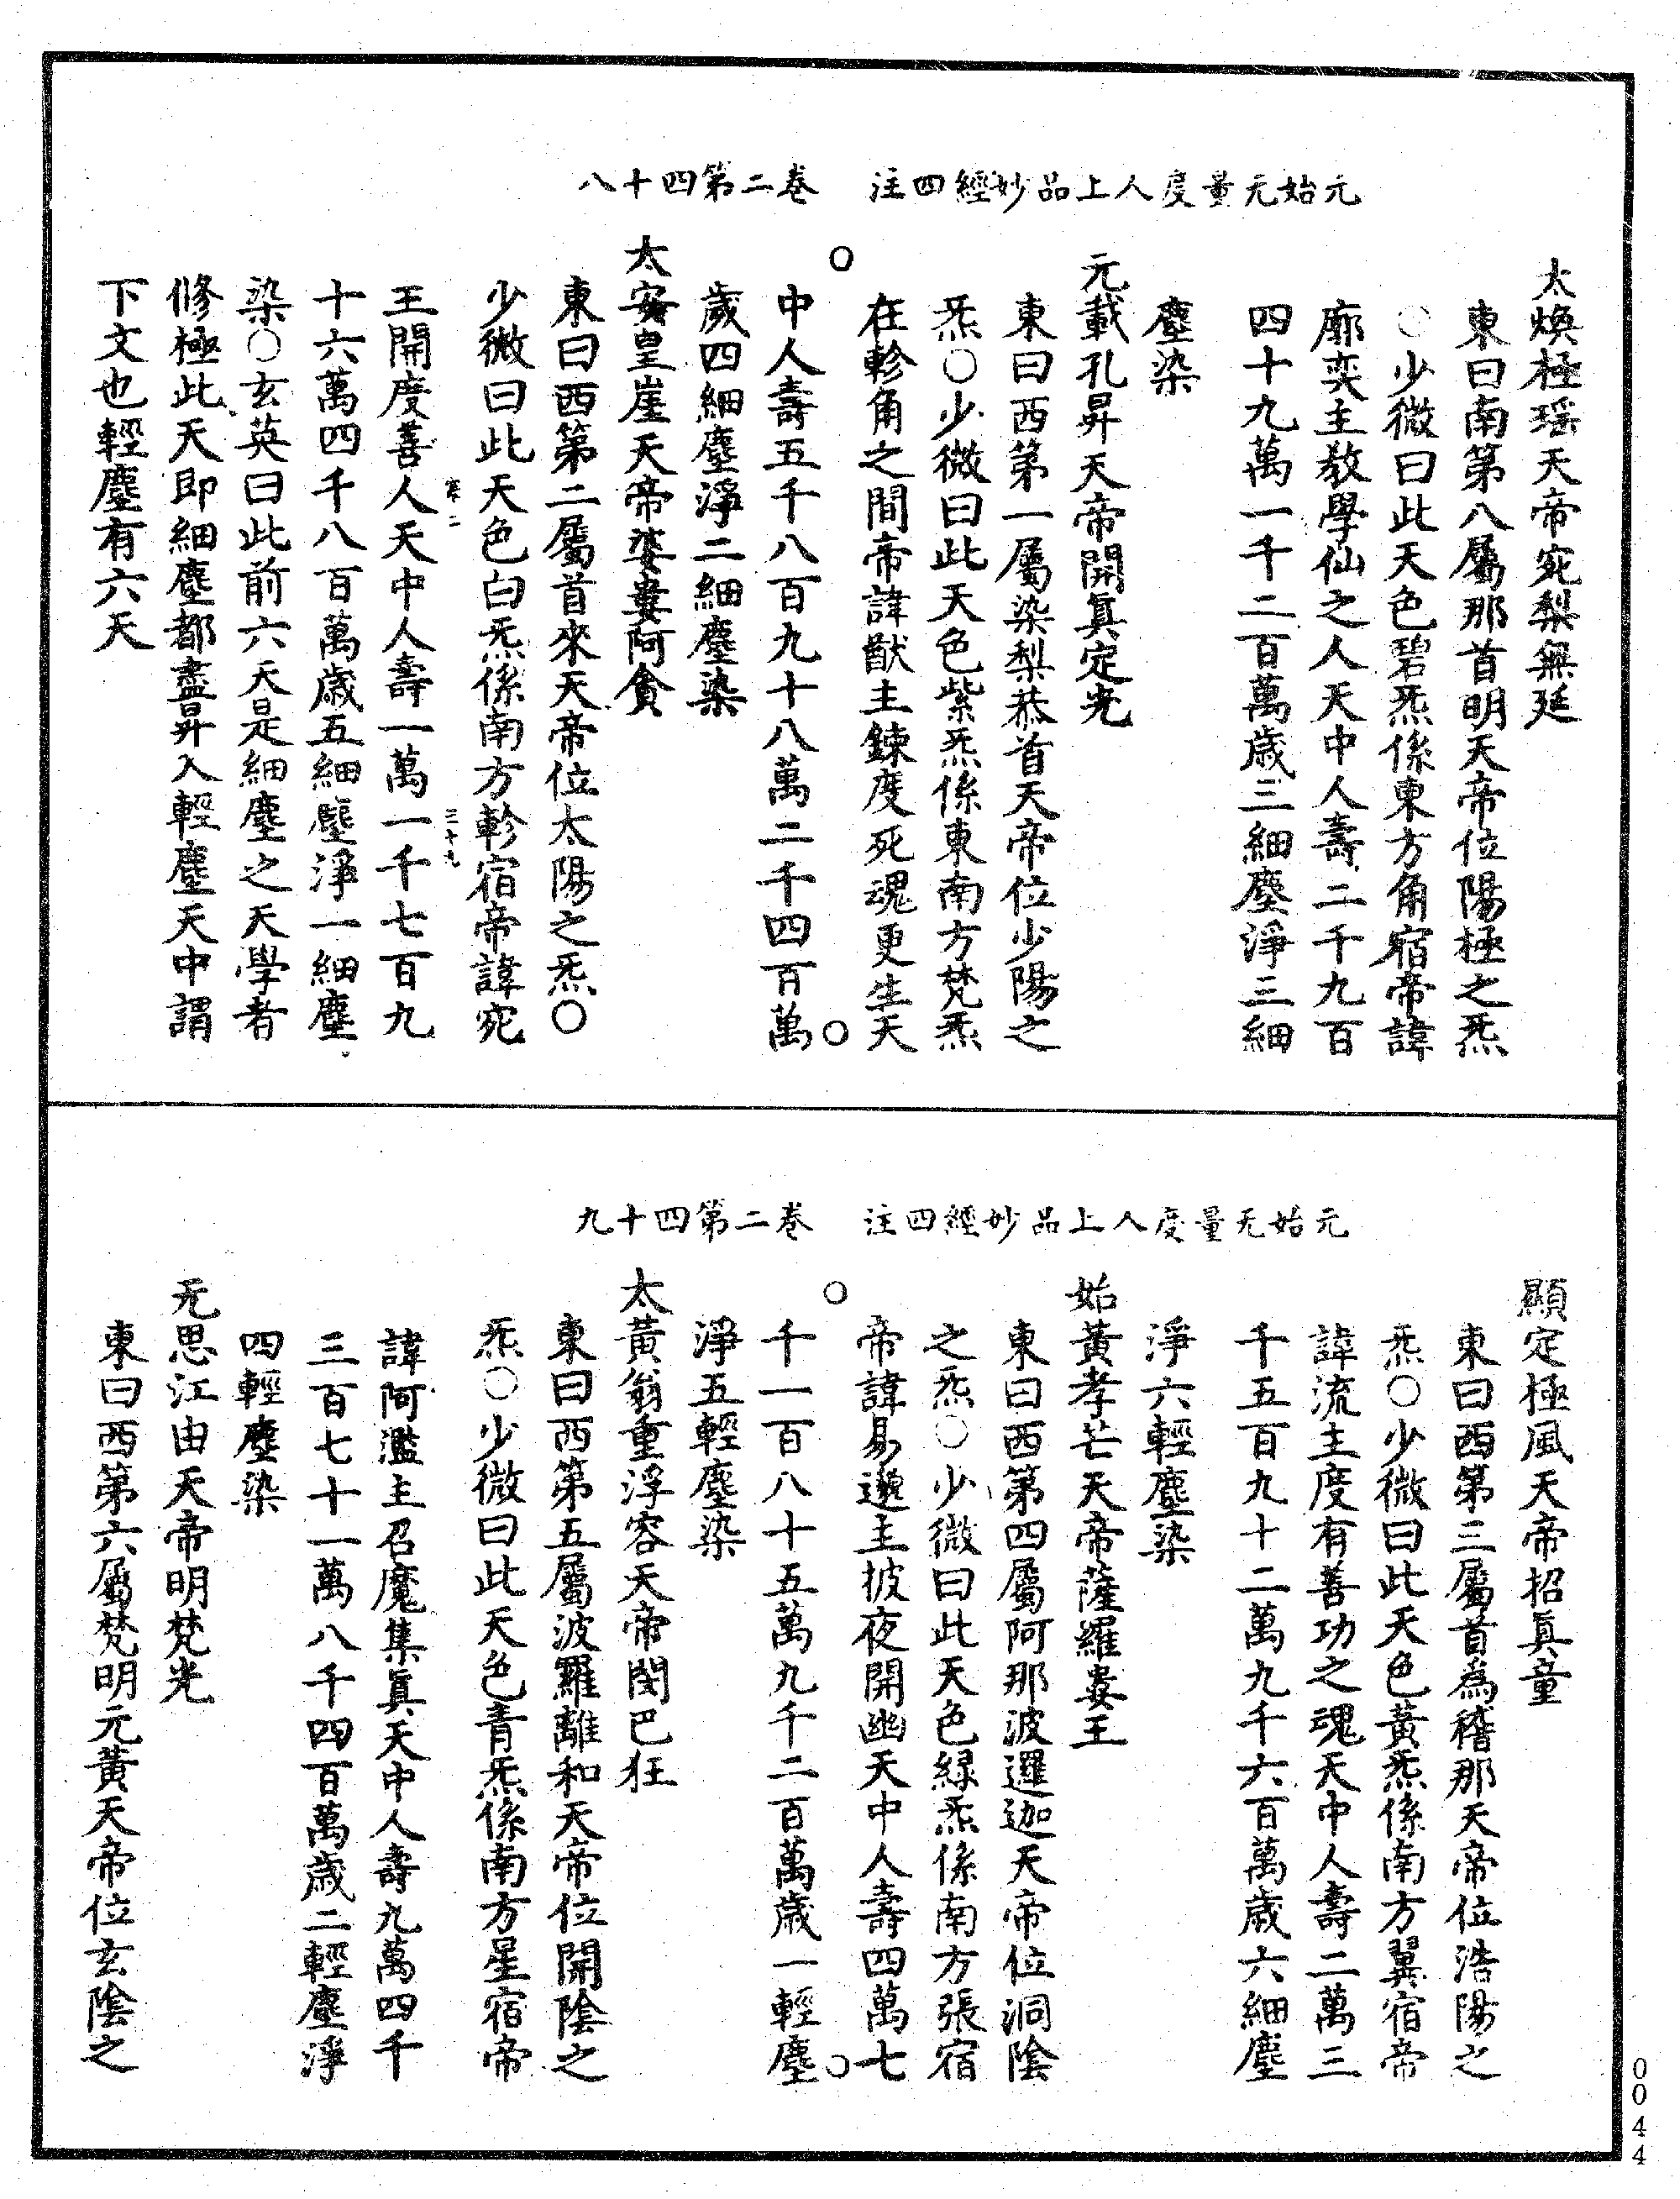 元始无量度人上品妙經四注　卷二第四十八
太煥極瑶天帝宛梨無延
東曰南第八屬那首明天帝位陽極之炁
○少微曰此天色碧炁係東方角宿帝諱
廓奕主教學仙之人天中人壽二千九百
四十九萬一千二百萬歲三細塵淨三細
塵染
元載孔昇天帝開眞定光
東曰西第一屬染梨恭首天帝位少陽之
炁○少微曰此天色紫炁係東南方梵炁
在軫角之間帝諱猷主鍊度死魂更生天
中人壽五千八百九十八萬二千四百萬
歲四細塵淨二細塵染
太安皇崖天帝婆婁阿貪
東曰西第二屬首來天帝位太陽之炁○
少微曰此天色白炁係南方軫宿帝諱宛
王開度善人天中人壽一萬一千七百九
十六萬四千八百萬歲五細塵淨一細塵
染○玄英曰此前六天是細塵之天學者
修極此天即細塵都盡昇入輕塵天中謂
下文也輕塵有六天
元始无量度人上品妙經四注　卷二第四十九
顯定極風天帝招眞童
東曰西第三屬首為稽那天帝位浩陽之
炁○少微曰此天色黃炁係南方翼宿帝
諱流主度有善功之魂天中人壽二萬三
千五百九十二萬九千六百萬歲六細塵
淨六輕塵染
始黃孝芒天帝薩羅婁王
東曰西第四屬阿那波邏迦天帝位洞陰
之炁○少微曰此天色緑炁係南方張宿
帝諱易邈主披夜開幽天中人壽四萬七
千一百八十五萬九千二百萬歲一輕塵
淨五輕塵染
太黃翁重浮容天帝閔巴狂
東曰西第五屬波羅離和天帝位開陰之
炁○少微曰此天色青炁係南方星宿帝
諱阿濫主召魔集眞天中人壽九萬四千
三百七十一萬八千四百萬歲二輕塵淨
四輕塵染
无思江由天帝明梵光
東曰西第六屬梵明元黃天帝位玄陰之
0044